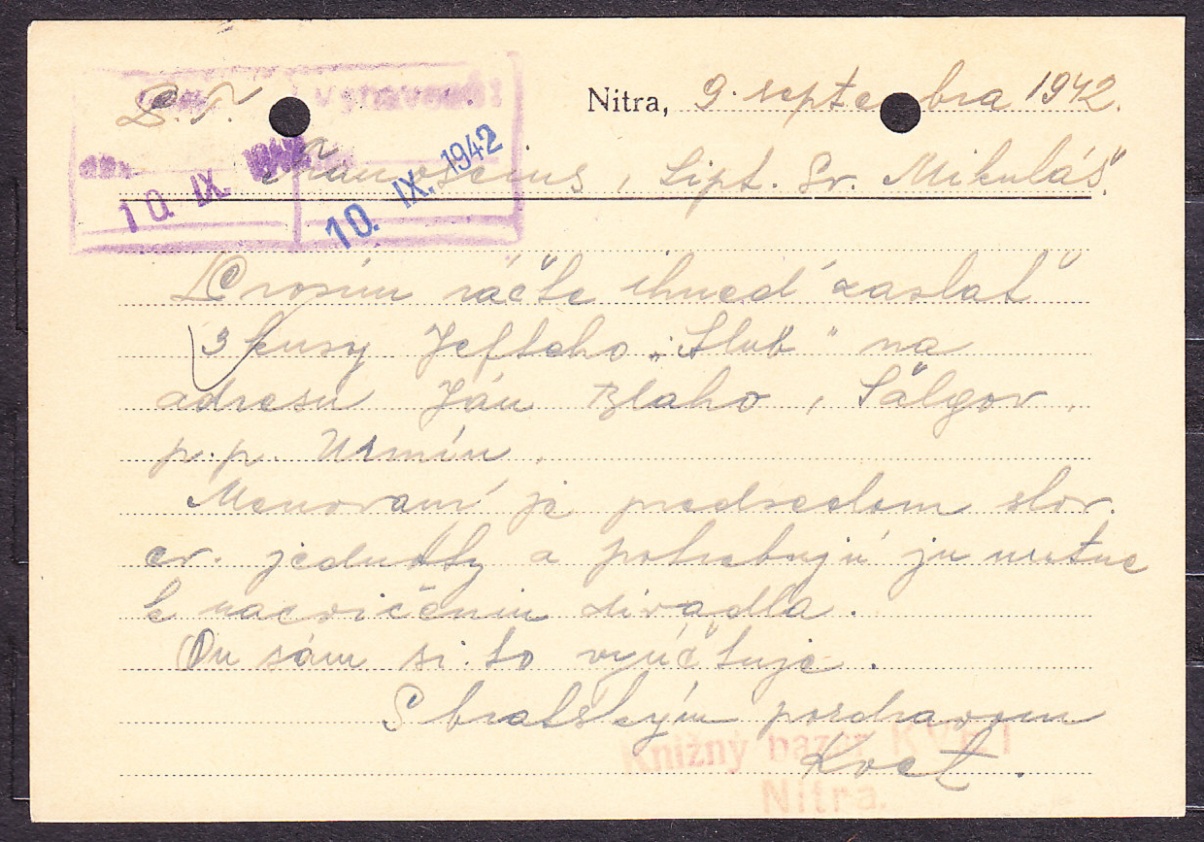 Vybavené:
P.T.
Nitra, 9. septembra 1942.
10. IX. 1942
10. IX. 1942
Tranoscius, Lipt. Sv. Mikuláš.
Prosím ráčte ihneď zaslať
3 kusy Jefteho „Sľub“ na
adresu Ján Blaho, Šalgov,
p.p. Urmín.
Menovaný je predsedom slov.
ev. jednoty a potrebujú ju nutne
k nacvičeniu divadla.
On sám si to vyúčtuje.
S bratským pozdravom
Knižný bazár KVET
Kvet.
Nitra.